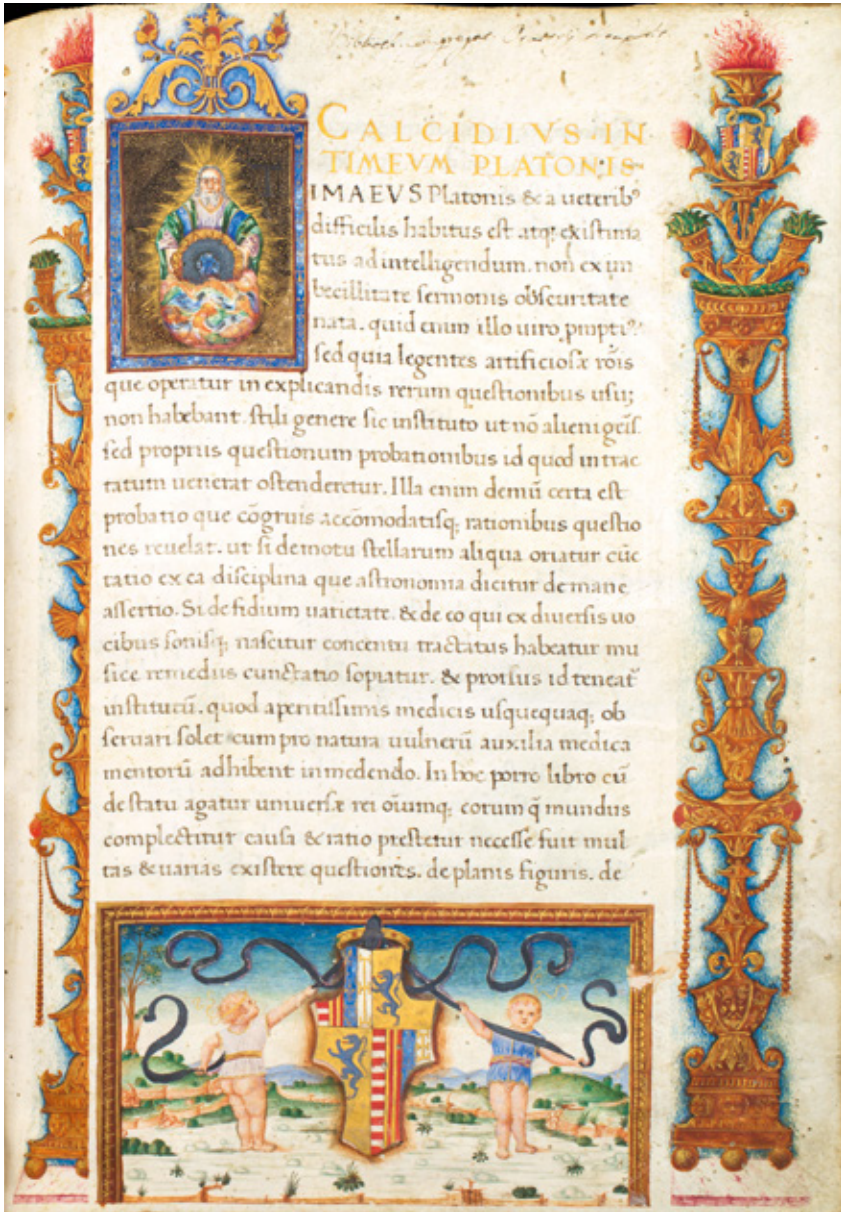 CALCIDIVS IN
TIMEVM PLATONIS
IMAEVS Platonis & a ueterib⁹
difficilis habitus est atq; existima
tus ad intelligendum. non ex im
becillitate sermonis obscuritate
nata. quid enim illo uiro
sed quia legentes artificiosæ rōis
que operatur in explicandis rerum questionibus usū;
non habebant. stili genere sic instituto ut nō alienigēīs
sed propriis questionum probationibus id quod in trac
tatum uenerat ostenderetur. Illa enim demū certa est
probatio que cōgruis accōmodatisq; rationibus questio
nes reuelat. ut si de motu stellarum aliqua oriatur cūc
tatio ex ea disciplina que astronomia dicitur de mane
assertio. Si de fidium uarietate. & de eo qui ex diuersis uo
cibus sonisq; nascitur concentu tractatus habeatur mu
sice remediis cunctatio sopiatur. & prorsus id teneat᷑
institutū. quod a peritissimis medicis usquequaq; ob
seruari solet cum pro natura uulnerū auxilia medica
mentorū adhibent in medendo. In hoc porro libro cū
de statu agatur uniuersæ rei oīumq; eorum q̄ mundus
complectitur causa & ratio prestetur necesse fuit mul
tas & uarias existere questiones. de planis figuris. de